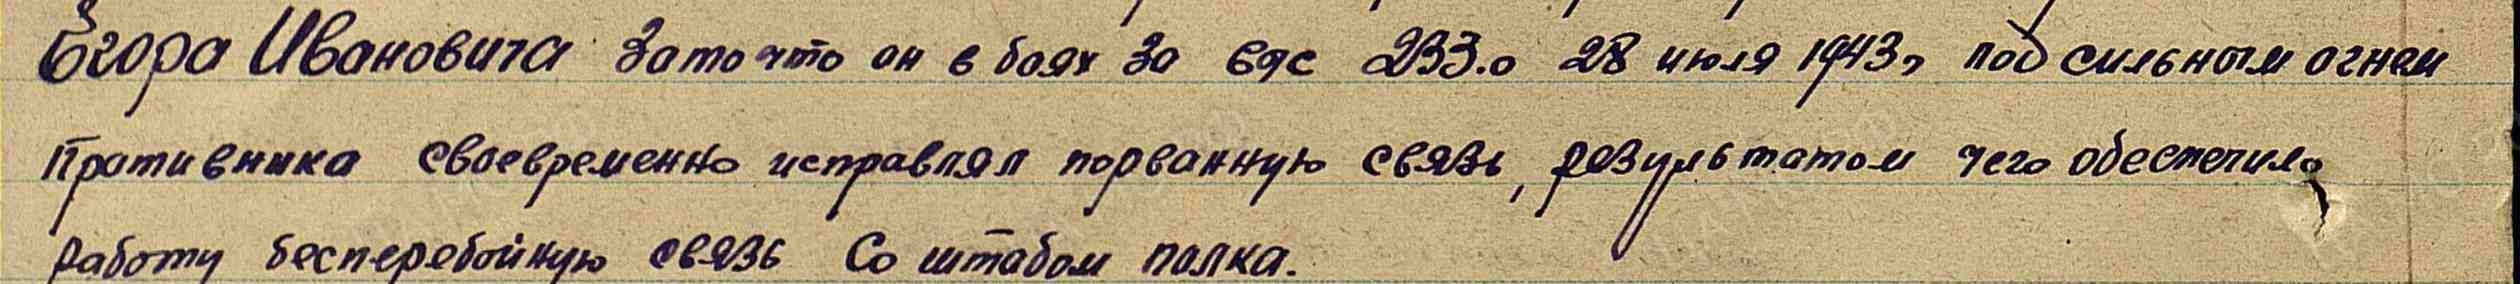 Егора Ивановича зато что он в боях за выс 233.0 28 июля 1943г под сильным огнем
Противника своевременно исправлял порванную связь, результатом чего обеспечило
работу бесперебойную связь Со штабом полка.